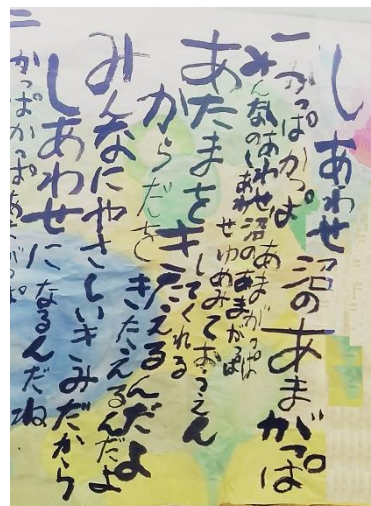 しあわせ沼のあまがっぱ
一 かっぱかっぱ あまがっぱ
しあわせ沼のあまがっぱ
みんなのしあわせゆめみておうえん
してくれる
あたまをきたえるんだよ
からだをきたえるんだよ
みんなにやさしいきみだから
しあわせになるんだね
二 かっぱかっぱあまがっぱ